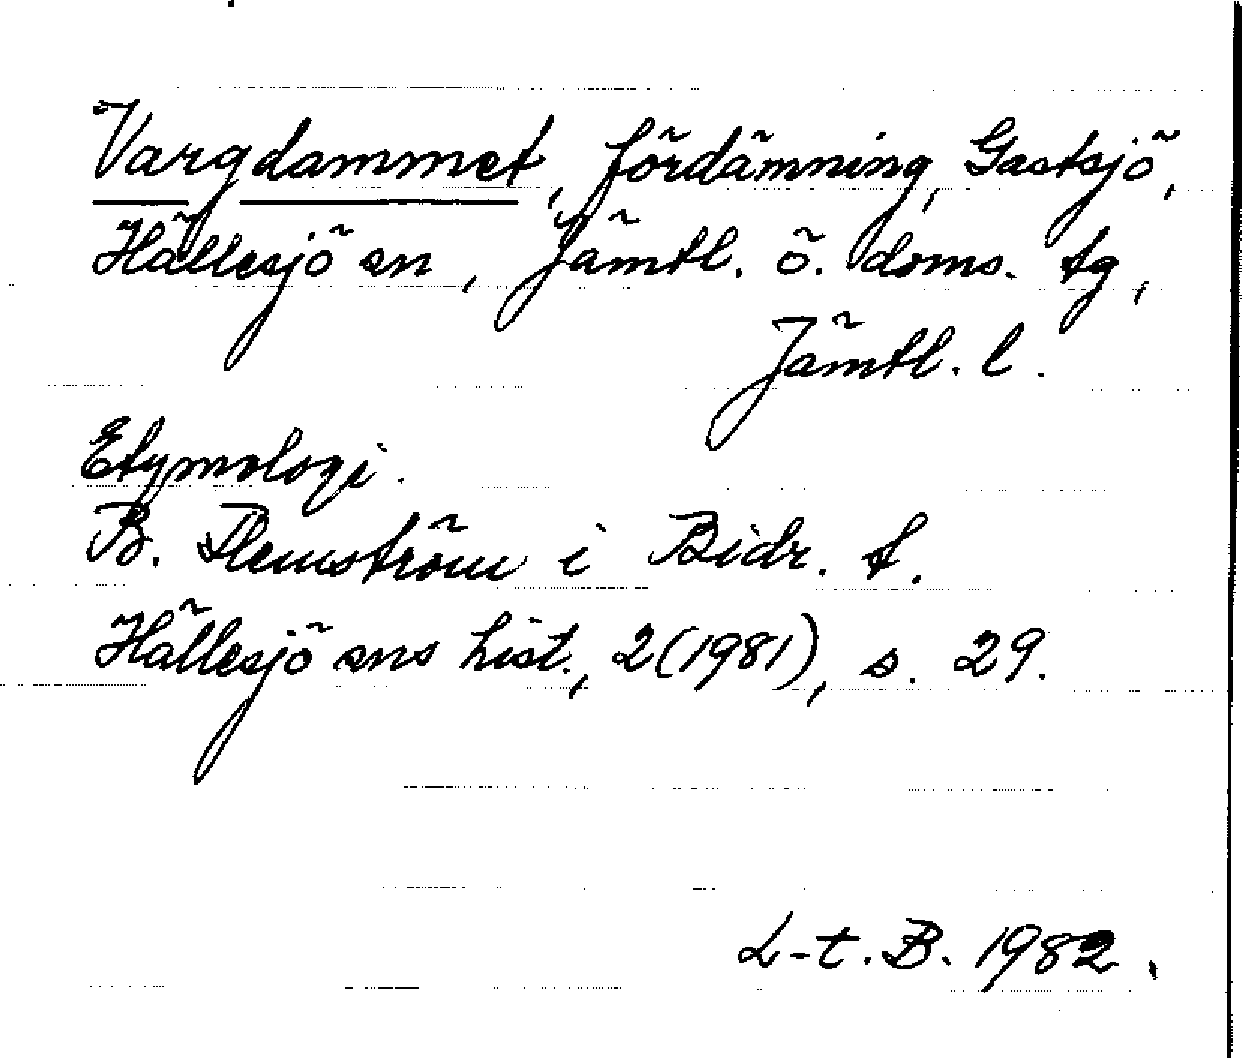 Vargdammet, fördämning, Gastsjö,
Hällesjö sn, Jämtl. ö. doms. tg,
Jämtl. l.
Etymologi.
B. Flemström i Bidr. t.
Hällesjö sns hist., 2(1981), s. 29.
L-t. B. 1982.